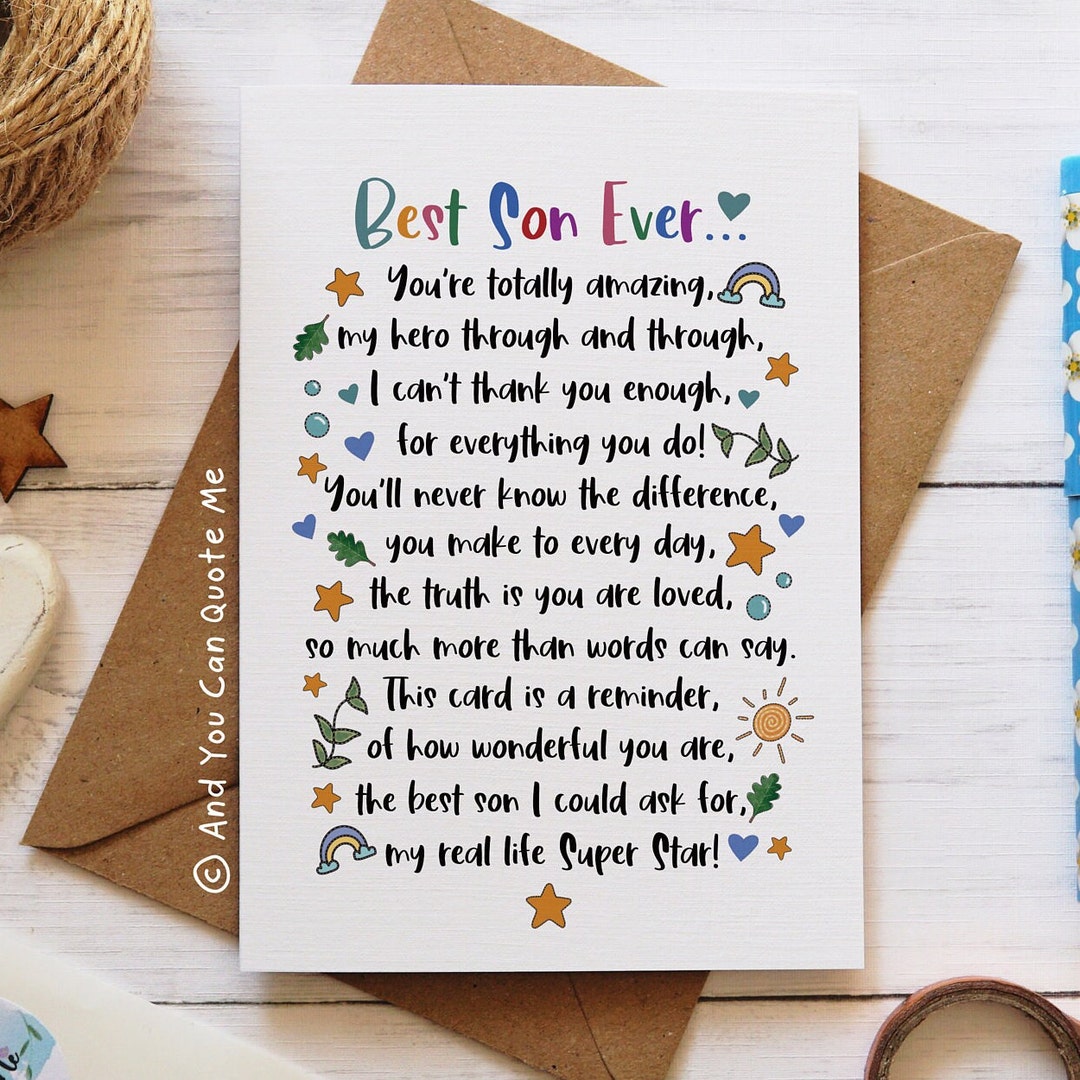 Best Son Ever...
You're totally amazing,
my hero through and through,
I can't thank you enough,
for everything you do!
You'll never know the difference,
you make to every day,
the truth is you are loved,
so much more than words can say.
This card is a reminder,
of how wonderful you are,
the best son I could ask for,
my real life Super Star!
© And You Can Quote Me